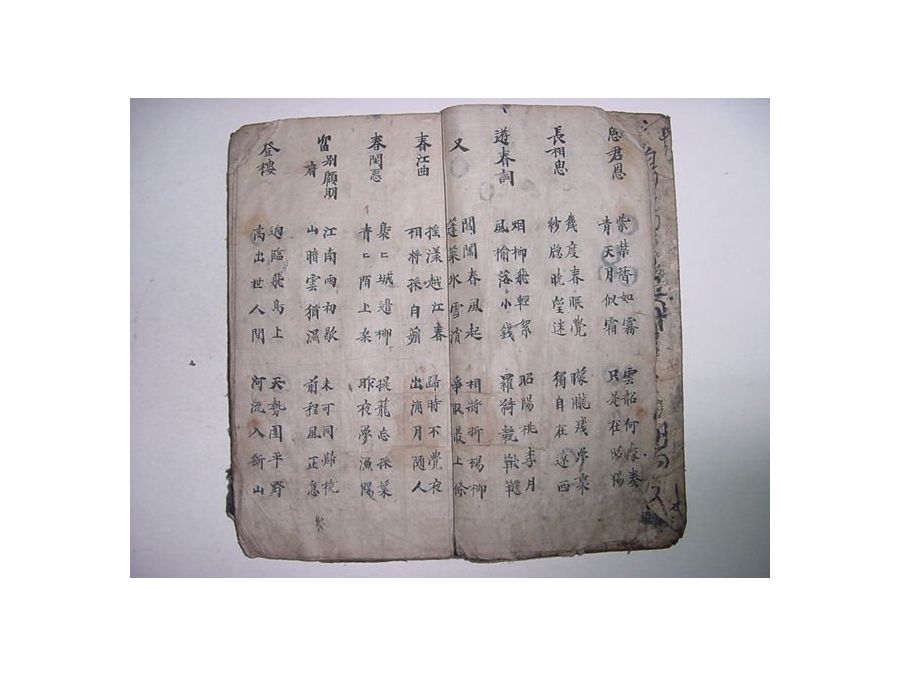 思君恩
紫禁皆如霧
青天月似霜
雲韶何處奏
只是在昭陽
長相思
幾度春眠覺
紗窓曉望迷
朦朧残夢裏
獨自在遼西
遊春詞
烟柳飛輕絮
風榆落小錢
昭陽桃李月
羅綺競鞦韆
又
閶闔春風起
蓬萊水雪消
相將折楊柳
爭取最上條
春江曲
搖漾越江春
相將採自蘋
歸時不覺夜
出浦月隨人
春閨怨
裊〻城邊柳
青〻陌上桑
提籠忘採葉
昨夜夢漁陽
留別顧朋府
江南雨初歇
山暗雲猶濕
未可同歸橈
前程風正急
登樓
迥臨飛鳥上
高出世人間
天勢圍平野
河流入斷山